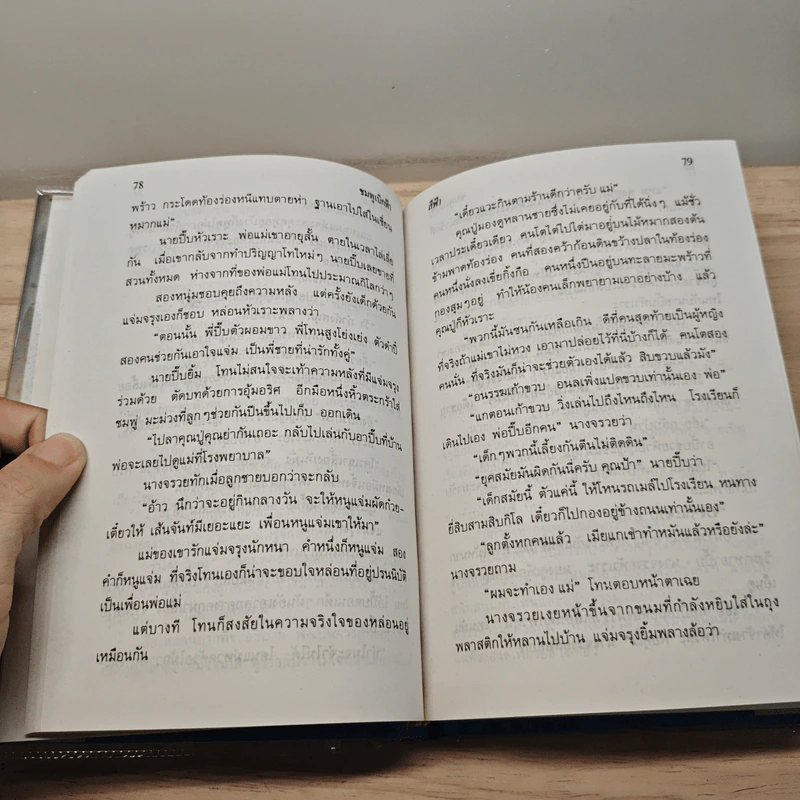 78
ชมพูเบิกฟ้า
พร้าว กระโดดท้องร่องหนีแทบตายห่า ฐานเอาไปใส่ในเชี่ยน
หมากแม่”
นายปิ๊บหัวเราะ พ่อแม่เขาอายุสั้น ตายในเวลาไล่เลี่ย
กัน เมื่อเขากลับจากทำปริญญาโทใหม่ๆ นายปิ๊บเลยขายที่
สวนทั้งหมด ห่างจากที่ของพ่อแม่โทนไปประมาณกิโลกว่าๆ
สองหนุ่มชอบคุยถึงความหลัง แต่ครั้งยังเด็กด้วยกัน
แจ่มจรุงเองก็ชอบ หล่อนหัวเราะพลางว่า
“ตอนนั้น พี่ปิ๊บตัวผอมขาว พี่โทนสูงโย่งเย่ง ตัวดำปี๋
สองคนช่วยกันเอาใจแจ่ม เป็นพี่ชายที่น่ารักทั้งคู่”
นายปิ๊บยิ้ม โทนไม่สนใจจะเท้าความหลังที่มีแจ่มจรุง
ร่วมด้วย ตัดบทด้วยการอุ้มอริศ อีกมือหนึ่งหิ้วตระกร้าใส่
ชมพู่ มะม่วงที่ลูกๆช่วยกันปีนขึ้นไปเก็บ ออกเดิน
“ไปลาคุณปู่คุณย่ากันเถอะ กลับไปเล่นกับอาปิ๊บที่บ้าน
พ่อจะเลยไปดูแม่ที่โรงพยาบาล”
นางจรวยทักเมื่อลูกชายบอกว่าจะกลับ
“อ้าว นึกว่าจะอยู่กินกลางวัน จะให้หนูแจ่มผัดก๋วย-
เตี๋ยวให้ เส้นจันท์มีเยอะแยะ เพื่อนหนูแจ่มเขาให้มา”
แม่ของเขารักแจ่มจรุงนักหนา คำหนึ่งก็หนูแจ่ม สอง
คำก็หนูแจ่ม ที่จริงโทนเองก็น่าจะขอบใจหล่อนที่อยู่ปรนนิบัติ
เป็นเพื่อนพ่อแม่
แต่บางที โทนก็สงสัยในความจริงใจของหล่อนอยู่
เหมือนกัน
สีฟ้า
79
“เดี๋ยวแวะกินตามร้านดีกว่าครับ แม่”
คุณปู่มองดูหลานชายซึ่งไม่เคยอยู่กับที่ได้นิ่งๆ แม้ชั่ว
เวลาประเดี๋ยวเดียว คนโตไต่ไปไต่มาอยู่บนไม้หมากสองต้น
ข้ามพาดท้องร่อง คนที่สองคว้าก้อนดินขว้างปลาในท้องร่อง
คนหนึ่งนั่งลงเขี่ยกิ้งกือ คนหนึ่งปีนอยู่บนทะลายมะพร้าวที่
กองสุมๆอยู่ ทำให้น้องคนเล็กพยายามเอาอย่างบ้าง แล้ว
คุณปู่ก็หัวเราะ
“พวกนี้มันซนกันเหลือเกิน ดีที่คนสุดท้ายเป็นผู้หญิง
ที่จริงถ้าแม่เขาไม่หวง เอามาปล่อยไว้ที่นี่บ้างก็ได้ คนโตสอง
คนนั่น ที่จริงมันก็น่าจะช่วยตัวเองได้แล้ว สิบขวบแล้วมัง”
“อนวรรษเก้าขวบ อนลเพิ่งแปดขวบเท่านั้นเอง พ่อ”
“แกตอนเก้าขวบ วิ่งเล่นไปถึงไหนถึงไหน โรงเรียนก็
เดินไปเอง พ่อปิ๊บอีกคน” นางจรวยว่า
“เด็กๆพวกนี้เลี้ยงกันตีนไม่ติดดิน”
“ยุคสมัยมันผิดกันนี่ครับ คุณป้า” นายปิ๊บว่า
“เด็กสมัยนี้ ตัวแค่นี้ ให้โหนรถเมล์ไปโรงเรียน หนทาง
ยี่สิบสามสิบกิโล เดี๋ยวก็ไปกองอยู่ข้างถนนเท่านั้นเอง”
“ลูกตั้งหกคนแล้ว เมียแกเขาทำหมันแล้วหรือยังล่ะ”
นางจรวยถาม
“ผมจะทำเอง แม่” โทนตอบหน้าตาเฉย
นางจรวยเงยหน้าขึ้นจากขนมที่กำลังหยิบใส่ในถุง
พลาสติกให้หลานไปบ้าน แจ่มจรุงยิ้มพลางล้อว่า